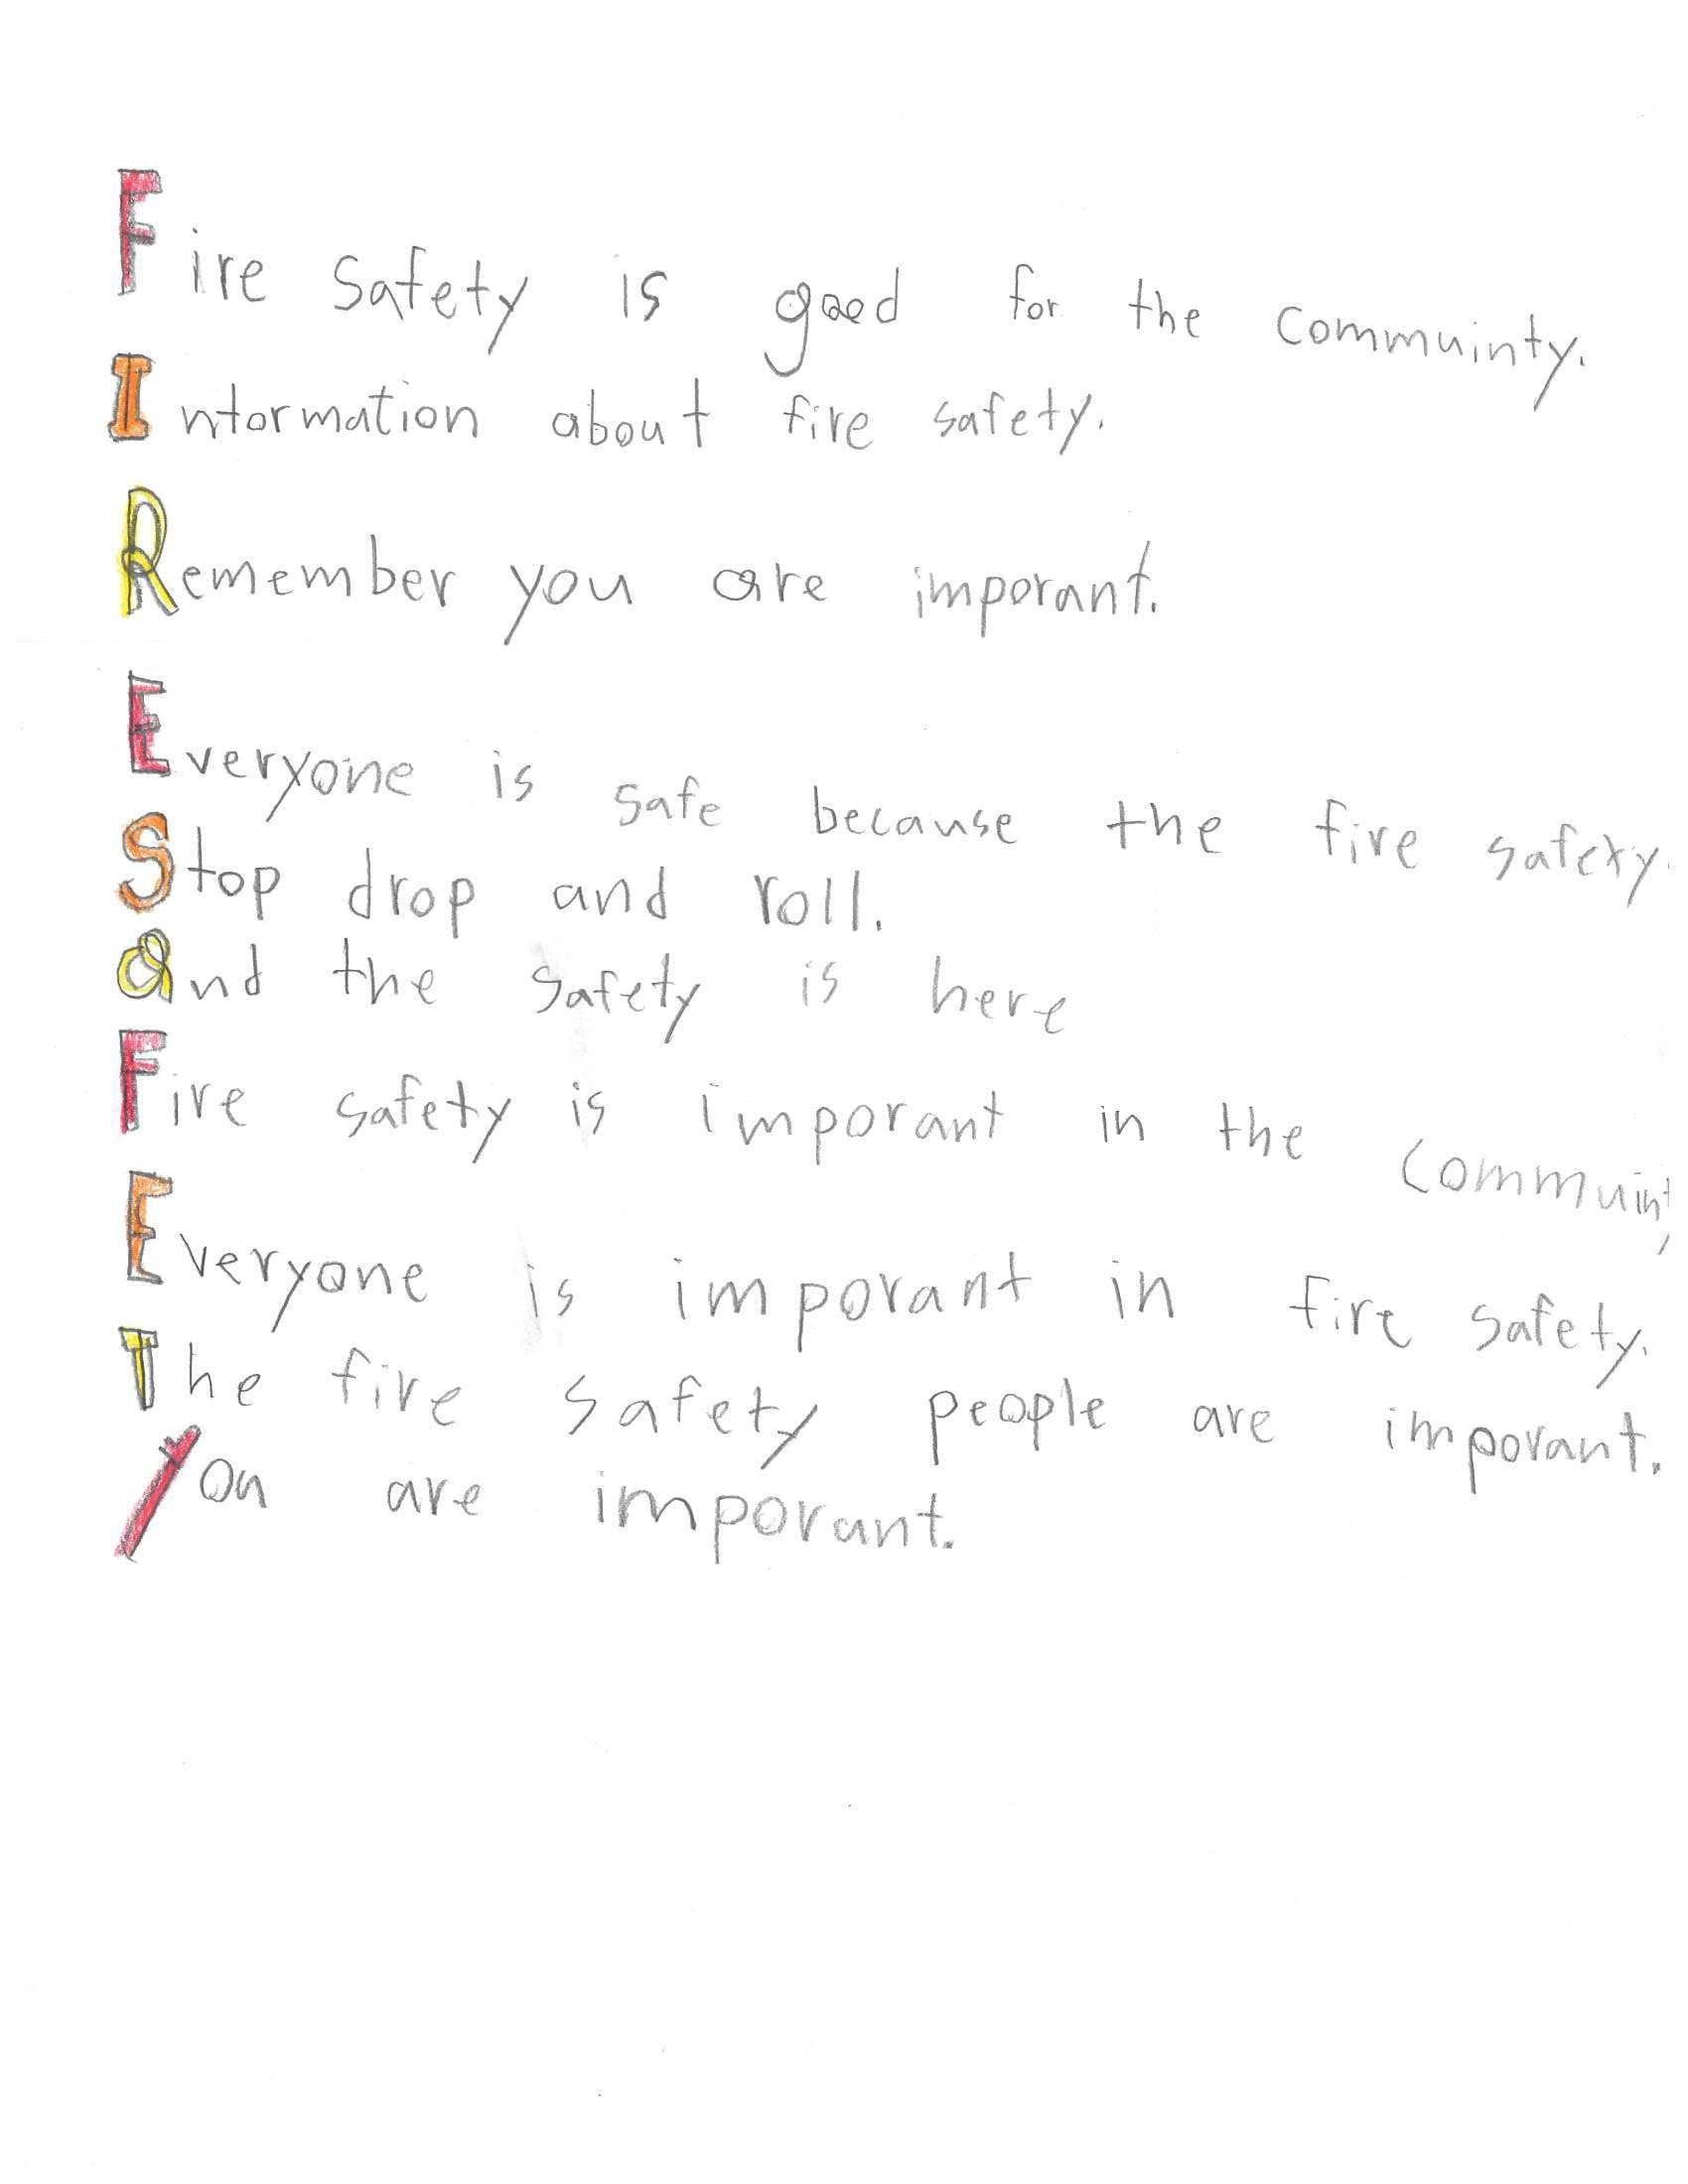 Fire safety is good for the commuinty.
Information about fire safety.
Remember you are imporant.
Everyone is safe because the fire safety.
Stop drop and roll.
and the safety is here
Fire safety is imporant in the commuinty
Everyone is imporant in fire safety.
The fire safety people are imporant.
You are imporant.